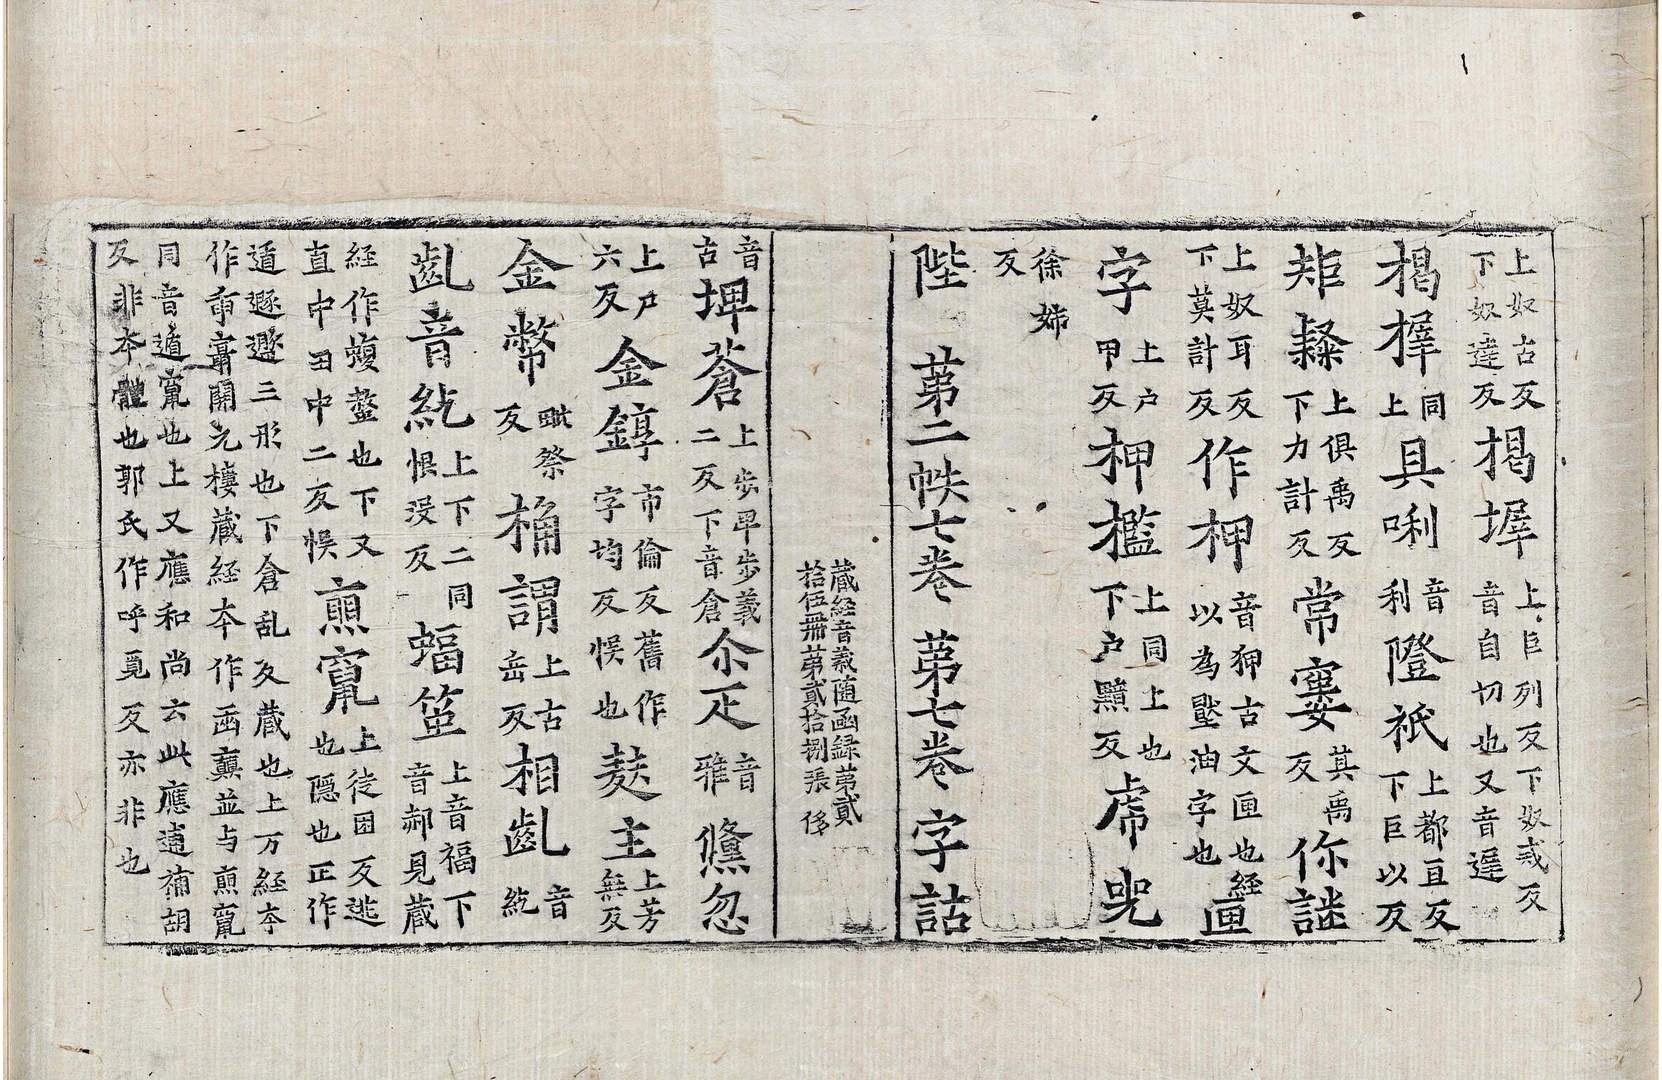 上奴古反下奴達反揭墀上巨列反下奴戒反音自切也又音遲
揭㨃同上具唎音利隥祇上都亘反下巨以反
矩䵩上俱禹反下力計反常寠其禹反伱謎
上奴耳反下莫計反作柙音狎古文匣也経以為壓油字也匣
字上户甲反柙檻上同上也下户黤反虎兕
徐姊反
陛 第二帙七巻 第七巻 字詁
蔵経音義随函録第貳拾伍冊第貳拾捌張 侈
音古埤蒼上步卑步義二反下音倉尒疋音雅 儵忽
上户六反金錞市倫反舊作字均反悞也麸主上芳無反
金幣毗祭反桷謂上古岳反相齓音紇
齓音紇上下二同恨没反蝠䇠上音福下音郝見蔵
経作蝮螫也下又直中田中二反悞𤋎竄上徒困反逃也隱也正作
遁遯遯三形也下倉乱反蔵也上方経夲作𤋎竄開元樓蔵経夲作函藇並与𤋎竄
同音遁竄也上又應和尚云此應逋補胡反非夲體也郭氏作呼覓反亦非也